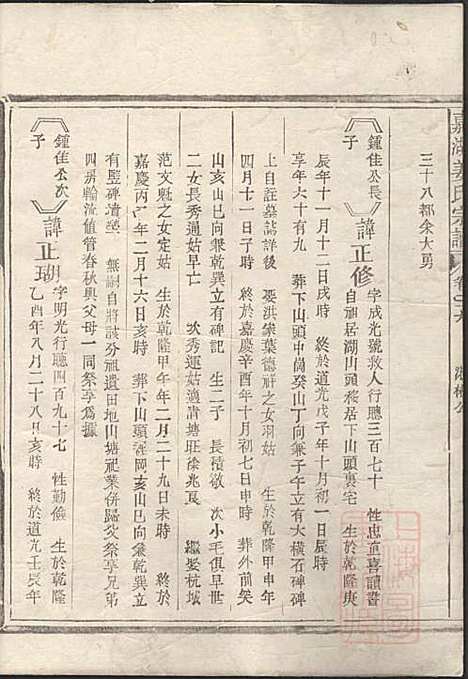 嘉湖姜氏宗譜
三十八都余大勇
鍾佳公長子
諱正修
字成光號救人行聽三百七十 性忠直喜讀書
自祖居湖山頭移居下山頭裏宅 生於乾隆庚
辰年十一月十二日戌時 終於道光戊子年十月初一日辰時
享年六十有九 葬下山頭中崗癸山丁向兼子午立有大橫石碑碑
上自註墓誌詳後 娶洪崇葉德祈之女羽姑 生於乾隆甲申年
四月十一日子時 終於嘉慶辛酉年十月初七日申時 葬外前矣
山亥山巳向兼乾巽立有碑記 生二子 長積敬 次小毛俱早亡
二女長秀適姑早亡 次秀運姑適清塘旺徐兆良 繼娶杭城
范文魁之女定姑 生於乾隆甲午年二月二十九日未時 終於
嘉慶丙子年二月十六日亥時 葬下山頭後岡亥山巳向兼乾巽立
有豎碑遺塋 無嗣自將該分祖遺田地山塘祀業併歸父祭享兄弟
四房輪流值管春秋與父母一同祭享爲據
鍾佳公次子
諱正瑚
字明光行聽四百九十七 性勤儉 生於乾隆
乙酉年八月二十八日亥時 終於道光壬辰年